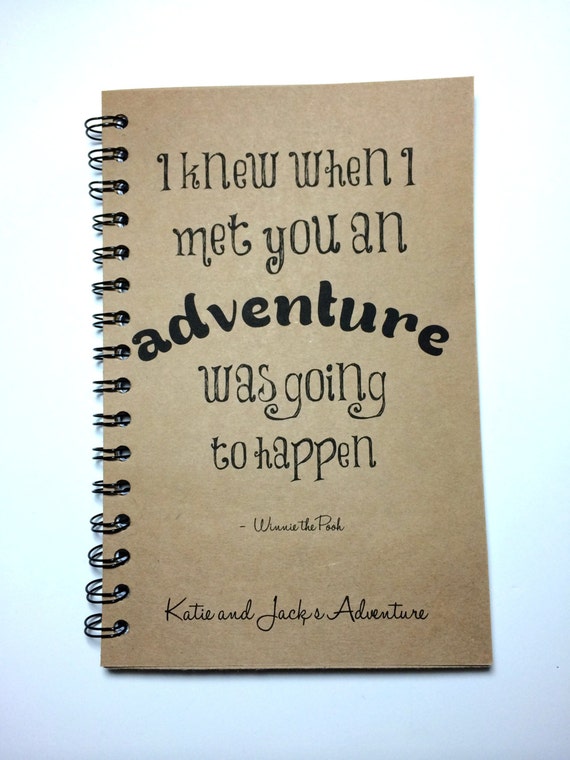 I knew when I
met you an
adventure
was going
to happen
- Winnie the Pooh
Katie and Jack's Adventure